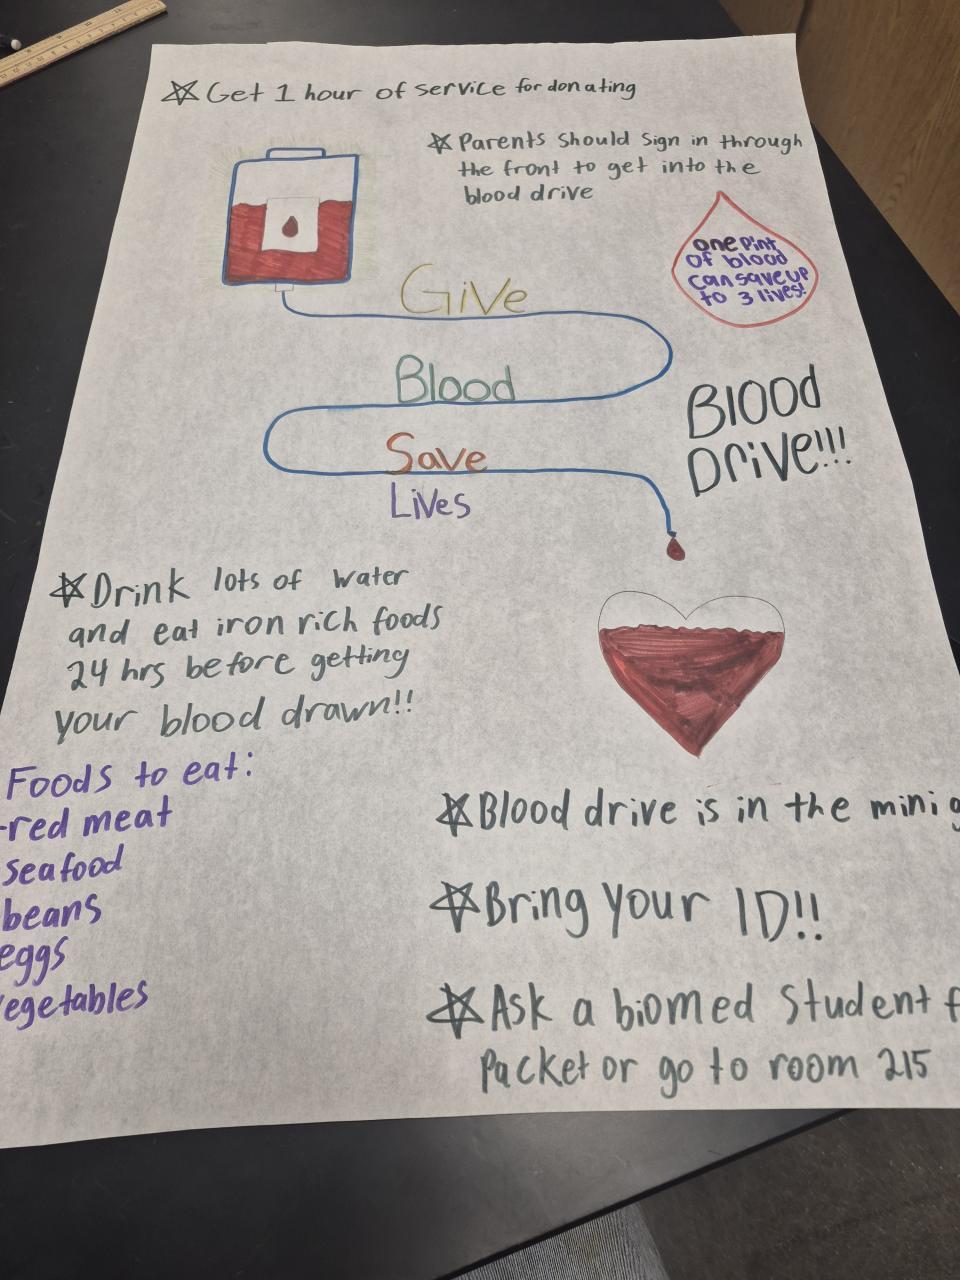 Get 1 hour of service for donating
Parents should sign in through
the front to get into the
blood drive
one pint
of blood
can save up
to 3 lives!
Give
Blood
Save
Lives
BLOOD
Drive!!!
Drink lots of water
and eat iron rich foods
24 hrs before getting
your blood drawn!!
Foods to eat:
-red meat
seafood
beans
eggs
vegetables
Blood drive is in the mini g
Bring your ID!!
Ask a biomed student f
packet or go to room 215